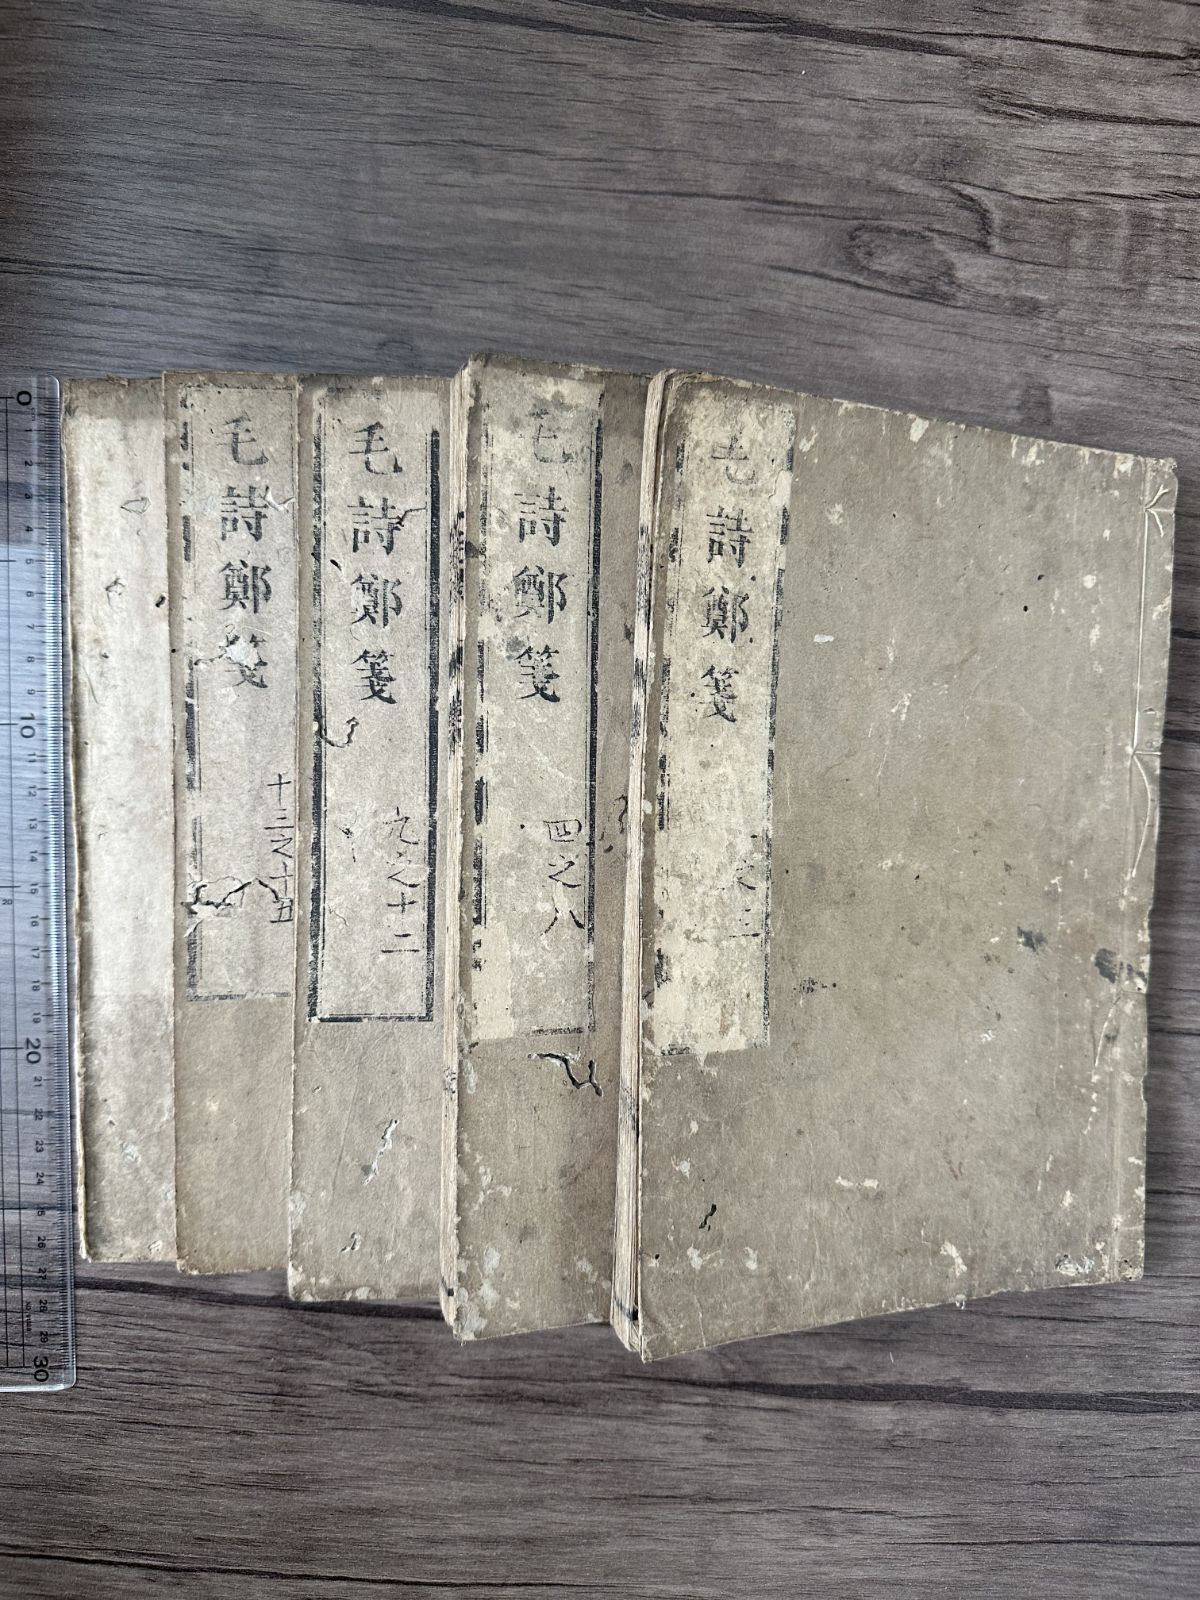 毛詩鄭箋
之三
毛詩鄭箋
四之八
毛詩鄭箋
九之十二
毛詩鄭箋
十三之十五
0 1 2 3 4 5 6 7 8 9 10 11 12 13 14 15 16 17 18 19 20 21 22 23 24 25 26 27 28 29 30